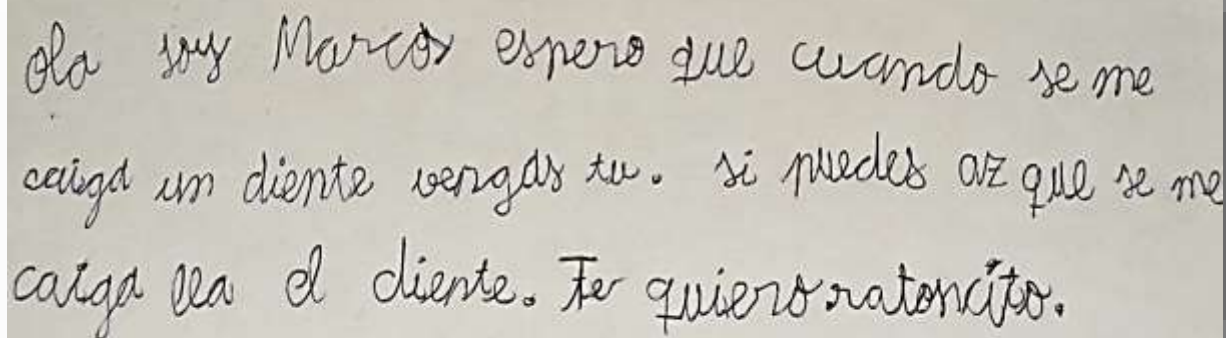 ola soy Marcos espero que cuando se me
caiga un diente vengas tu. si puedes az que se me
caiga lla el diente. Te quiero ratoncito.